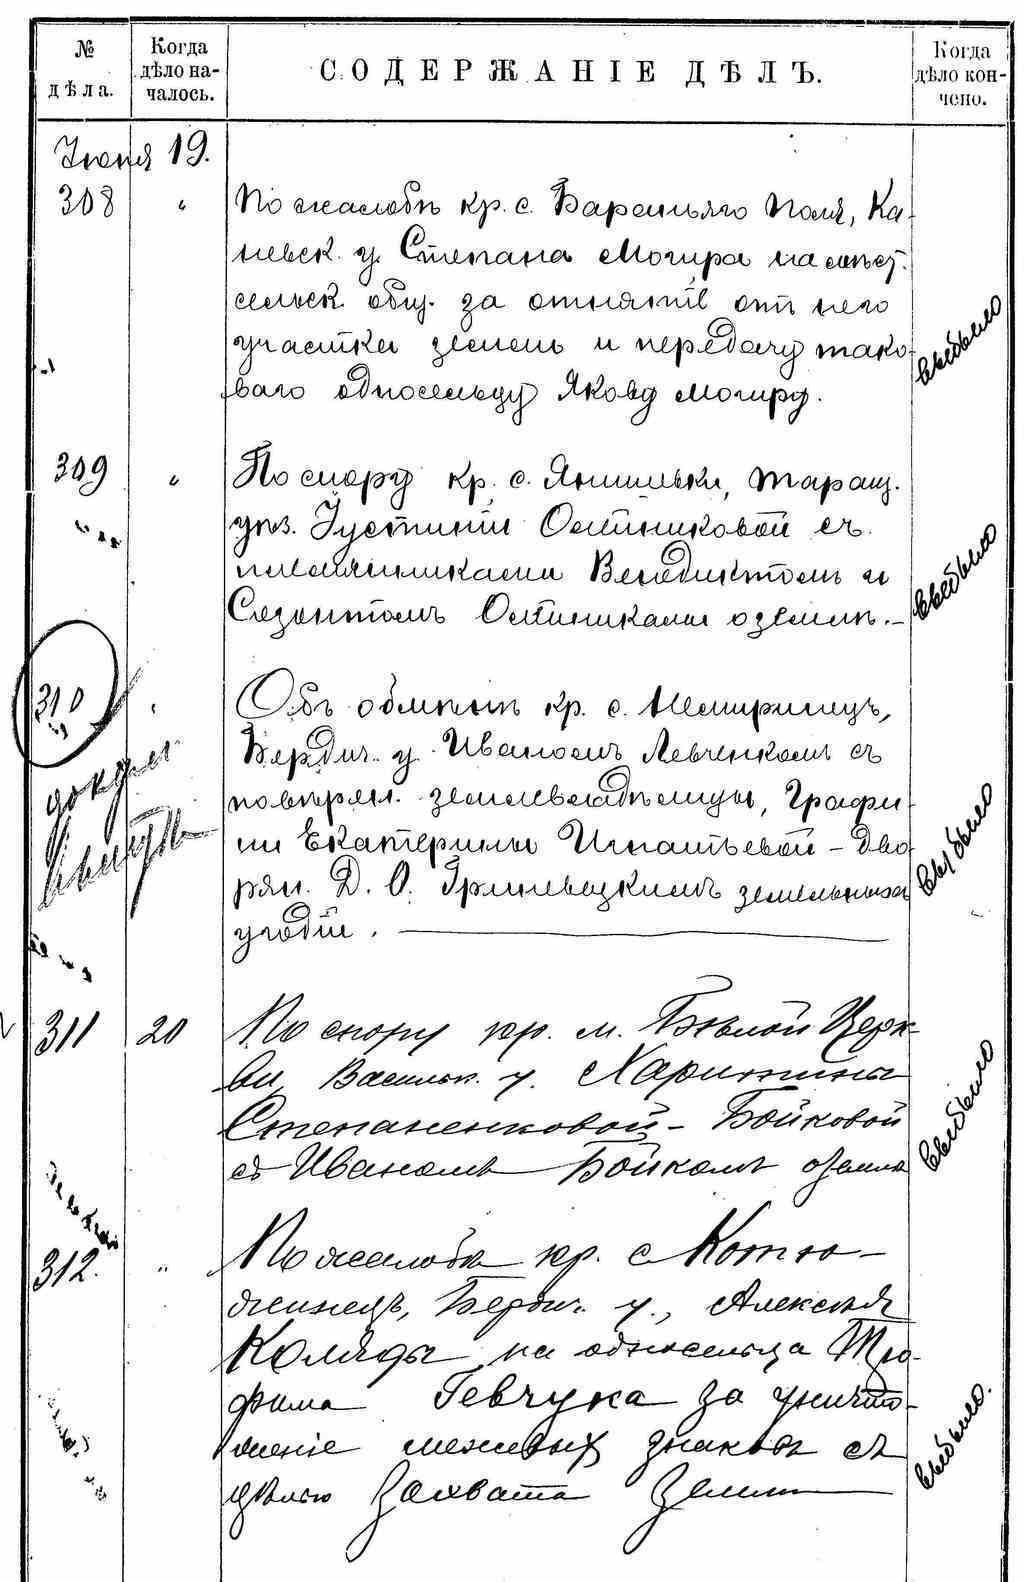 № дѣла.
Когда дѣло началось.
СОДЕРЖАНІЕ ДѢЛЪ.
Когда дѣло кончено.
Іюня 19.
308 " По жалобѣ кр. с. Бараньяго Поля, Ка-
невск. у. Степана Могира на мѣст.
сельск. общ. за отнятіе отъ него
участка земли и передачу тако-
ваго односельцу Якову Могиру.
выбыло
309 " По спору кр. с. Янишевки, Таращ.
уѣз. Іустиніи Осятниковой съ
племянниками Венедиктомъ и
Созонтомъ Осятниками о землѣ.-
выбыло
310 " Объ обмѣнѣ кр. с. Немиринецъ,
Бердич. у. Иваномъ Левченкомъ съ
повѣрен. землевладѣлицы, Графи-
ни Екатерины Игнатьевой - Дво-
рян. Д. О. Гриневецкимъ земельныхъ
угодій.
выбыло
311 20 По спору кр. м. Бѣлой Церк-
ви, Васильк. у. Харитины
Степаненковой - Бойковой
съ Иваномъ Бойкомъ о землѣ
выбыло
312. " По жалобѣ кр. с. Котю-
жинецъ, Бердич. у., Алексѣя
Коляды на односельца Тро-
фима Гевчука за уничто-
женіе межевыхъ знаковъ съ
цѣлью захвата земли
выбыло.